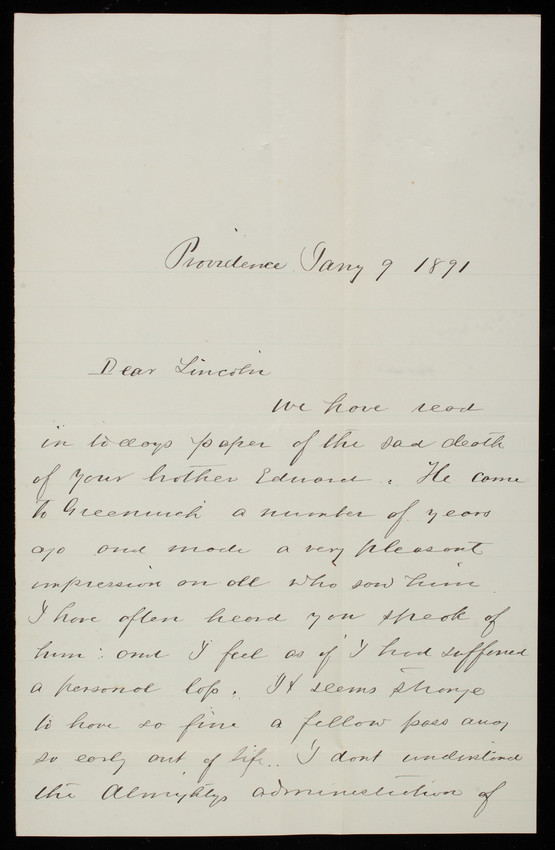 Providence Jany 9 1891
Dear Lincoln
We have read
in todays paper of the sad death
of your brother Edward. He came
to Greenwich a number of years
ago and made a very pleasant
impression on all who saw him
I have often heard you speak of
him: and I feel as if I had suffered
a personal loss. It seems strange
to have so fine a fellow pass away
so early out of life.. I dont understand
the Almightys administration of